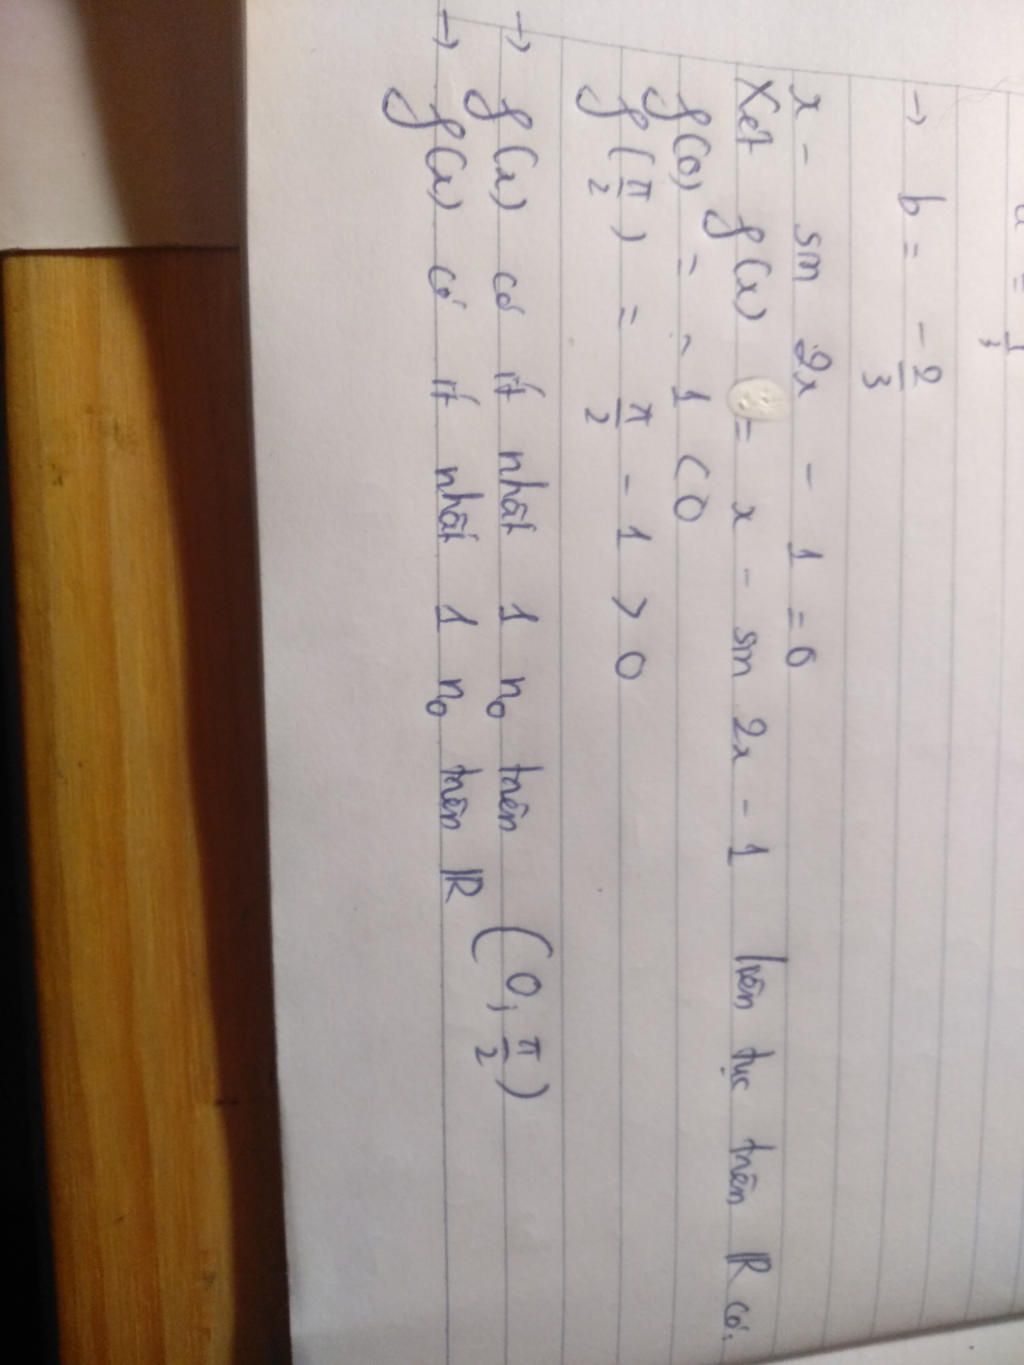 → b = -2/3
x - sin 2x - 1 = 0
Xét f(x) = x - sin 2x - 1 liên tục trên ℝ có.
f(0) = -1 < 0
f(π/2) = π/2 - 1 > 0
→ f(x) có ít nhất 1 no trên (0; π/2)
→ f(x) có ít nhất 1 no trên ℝ